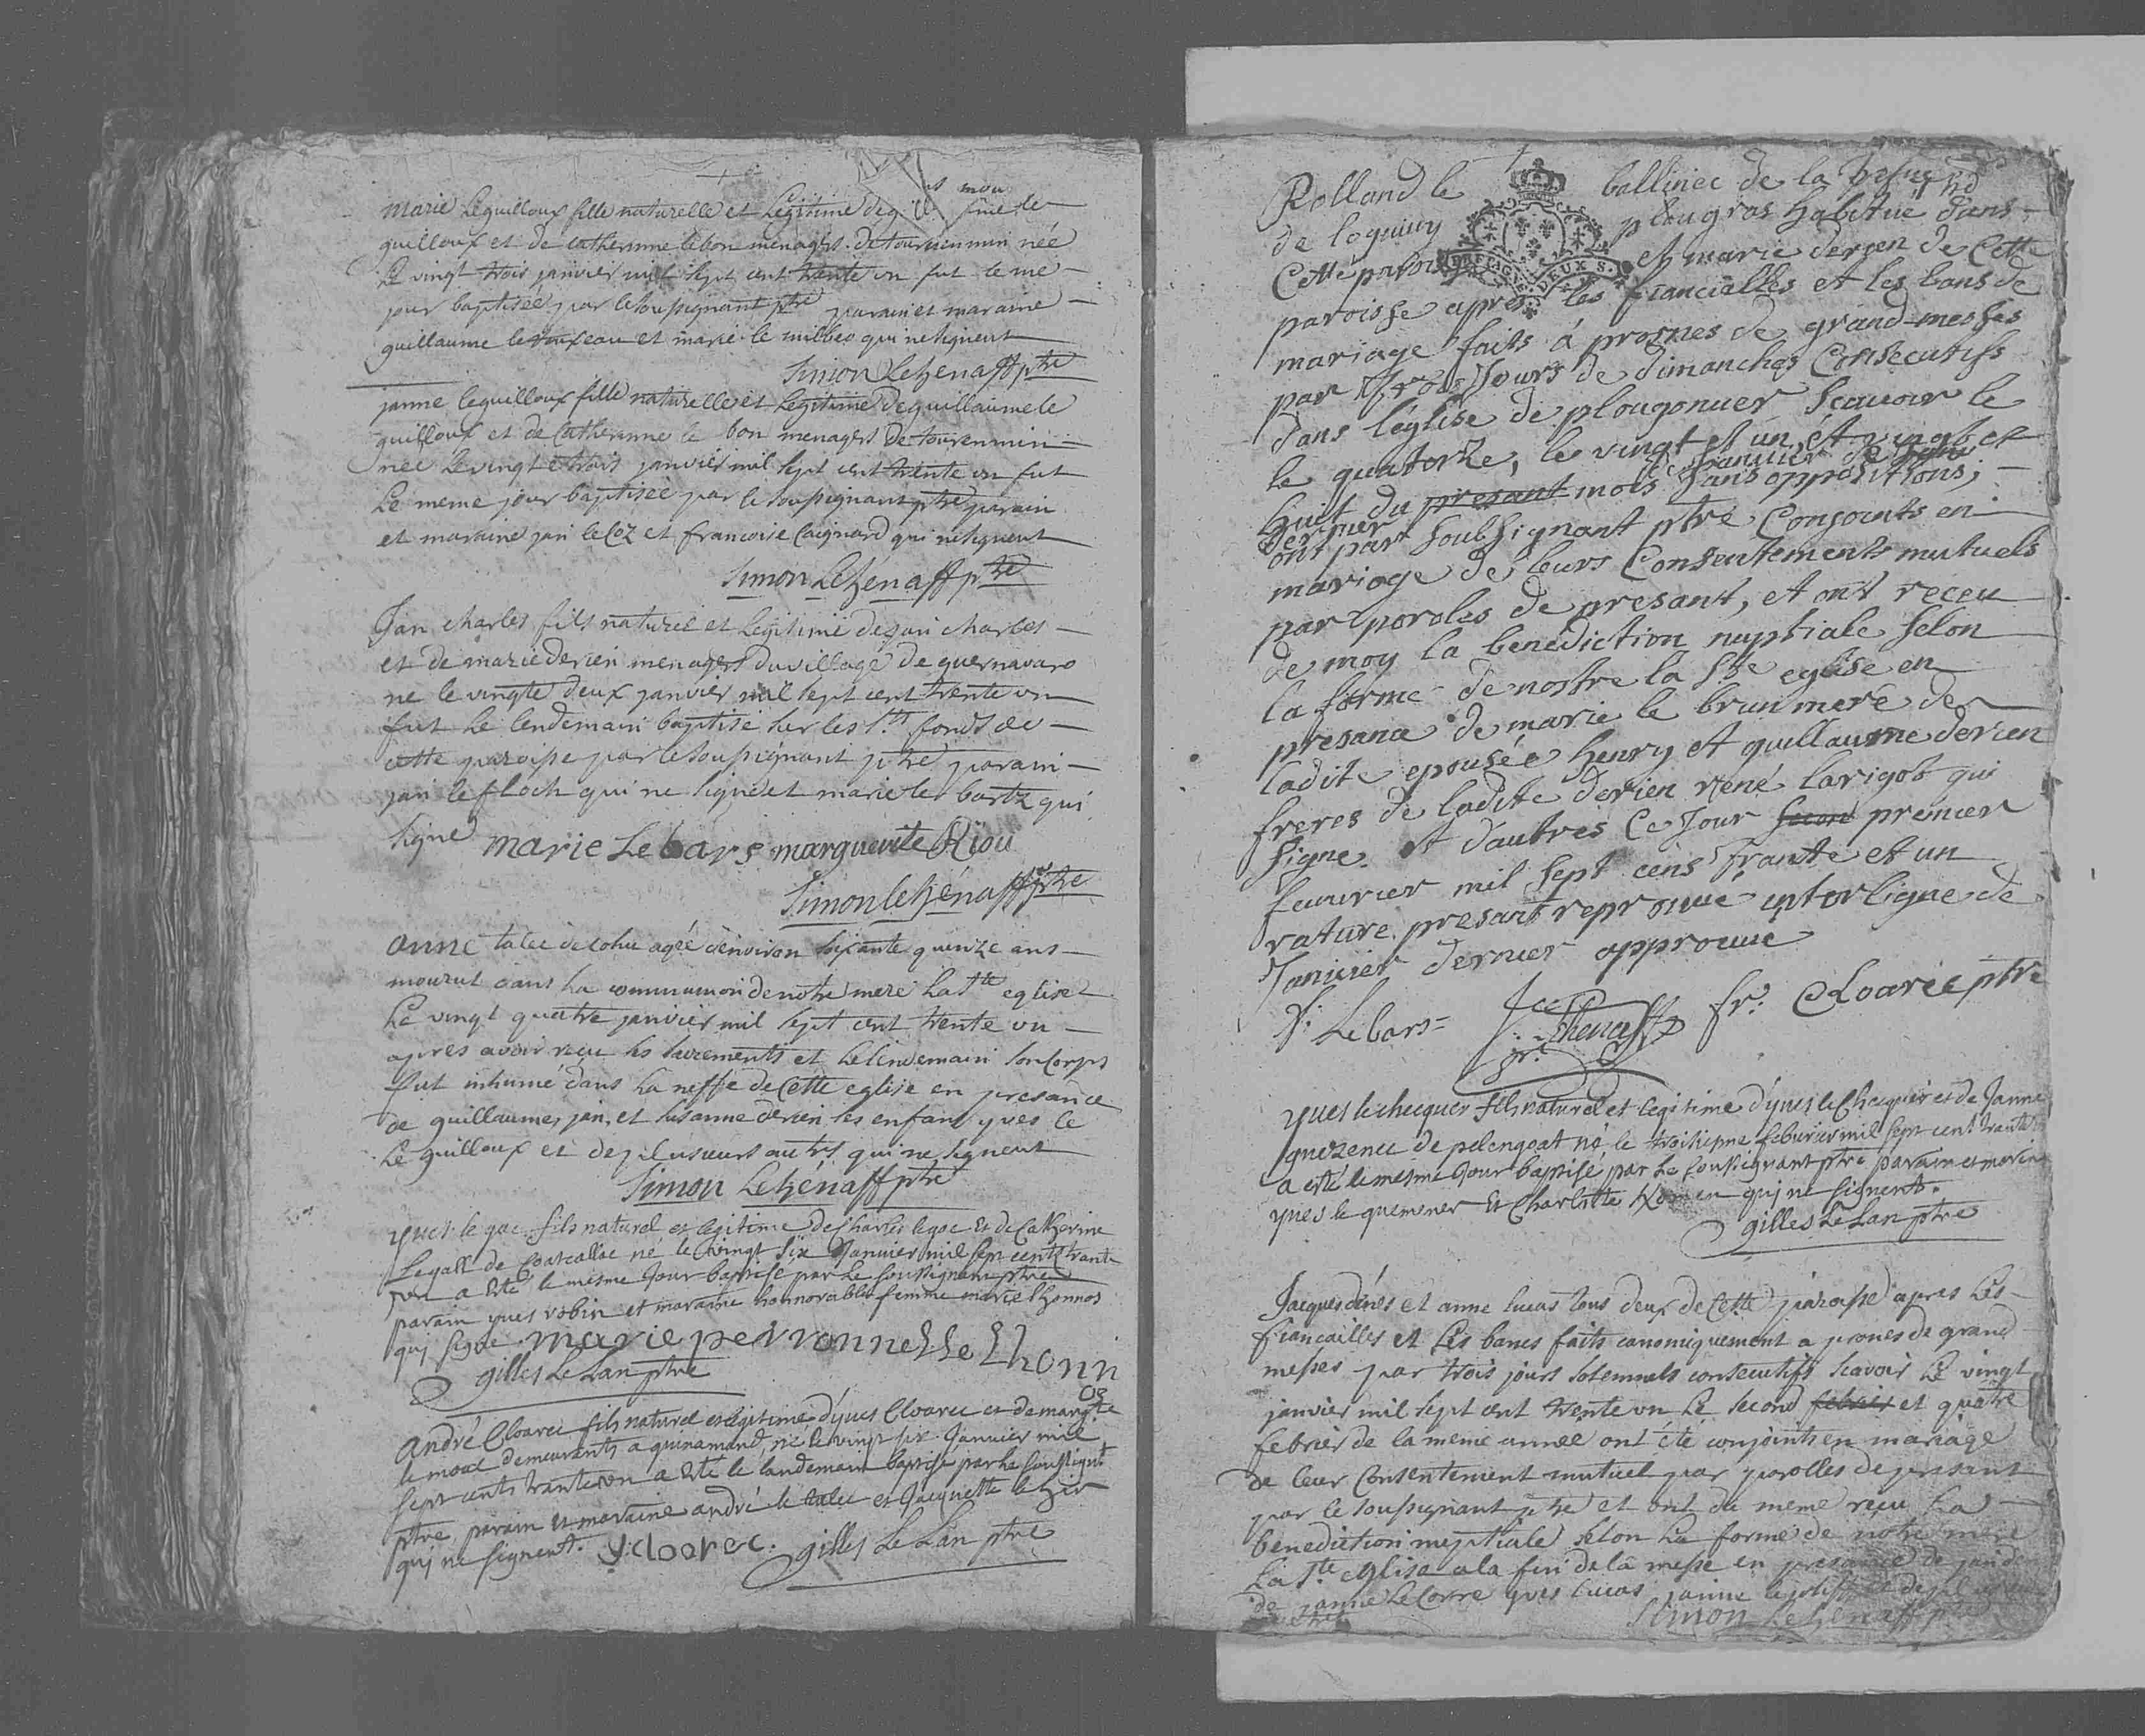 marie Leguilloux fille naturelle et Legitime de
guilloux et de catherinne lebon menagers de tournenmin née
Le vingt trois janvier mil sept cent trente un fut le mê
jour baptisée par le soussignant ptre parain et maraine
guillaume et marie le milbeo qui ne signent
Simon Lehénaff ptre
janne leguilloux fille naturelle et Legitime de guillaume le
guilloux et de Catherinne le bon menagers de tourenmin
née Le vingt et trois janvier mil sept cent trente un fut
Le meme jour baptisée par le soussignant ptre parain
et maraine jan le Coz et francoise Coignard qui ne signent
Simon Lehénaff ptre
Jan charles fils naturel et Legitime de jan charles
et de marie derien menagers du village de guernavaro
ne le vingte deux janvier mil sept cent trente un
fut Le lendemain baptisé sur les sts fonds de
cette paroisse par le soussignant ptre parain
jan le floch qui ne signe et marie le bartz qui
signe marie Le bars marguerite Riou
Simon lehénaff ptre
anne talec de cohu agée d'environ soixante quinze ans
mourut dans La communion de notre mere La ste eglise
Le vingt quatre janvier mil sept cent trente un
apres avoir reçu les sacrements et Le lendemain son corps
fut inhumé dans La neffe de Cette eglise en presance
de guillaume, jan, et susanne derien ses enfans yves Le
Le guilloux et de plusieurs autres qui ne signent
Simon Lehénaff ptre
yues le gac fils naturel et legitime de Charles legac Et de Catherine
Legall de Coatcallac né le vingt Six Janvier mil sept cents trante
un a Eté le mesme Jour baptisé par Le soussignant ptre
parain yues robin et maraine honnorable femme marie lhonnos
qui signe marie perronnelle Lhonn
os
gilles Le Lan ptre
André Cloarec fils naturel et legitime d'yues Cloarec et de margte
le moal demeurants a guinamand, né le vingt six Janvier mil
sept cents trante un a Eté le landemain baptisé par Le soussignt
ptre parain et maraine andré le talec et Jacquette le hir
qui ne signent. y: cloarec. gilles Le Lan ptre
Rolland le ballinec de la
de loguiuy plougras habitué dans
Cette paroisse et marie derien de Cette
paroisse après les fiancialles et les bans de
mariage faits á prosnes de grand-messes
par trois Jours de dimanches Consecutifs
dans l'église de plougonuer Scauoir le
le quatorze, le vingt et un, et vingt et
huit du presant mois sans oppositions,
dernier
ont par soubsignant ptre Conjoints en
mariage de leurs Consentements mutuels
par paroles de presant, et ont receu
de moy la benediction nuptiale selon
la forme de nostre la ste eglise en
presance de marie le brun mere de
ladite epousée henry et guillaume derien
freres de ladite derien rené larigob qui
signe et d'autres Ce Jour premier
feuurier mil sept cens trante et un
rature presant reprouué interligne de
Januier dernier approuué
Y: Le bars fr. Cloarec ptre
yues le checquer fils naturel et legitime d'yues le Checquer et de Janne
guezenec de pelengoat né le troisiesme feburier mil sept cent trante
a esté le mesme Jour baptisé par Le soussignant ptre parain et marine
yues le quemener Et Charlotte qui ne signent.
gilles Le Lan ptre
Jacques denes et anne lucas tous deux de Cette paroisse apres Les
fiancailles et Les bancs faits canoniquement a prones de grand
messes par trois jours solemnels consecutifs scavoir Le vingt
janvier mil sept cent trente un Le second febrier et quatre
febrier de la meme année ont été conjoints en mariage
de leur Consentement mutuel par parolles de presant
par le soussignant ptre et ont de meme reçu La
benediction nuptiale selon La forme de notre mere
La ste eglise a la fin de la messe en presance de
de janne Le Corre yves lucas janne
Simon Lehénaff ptre